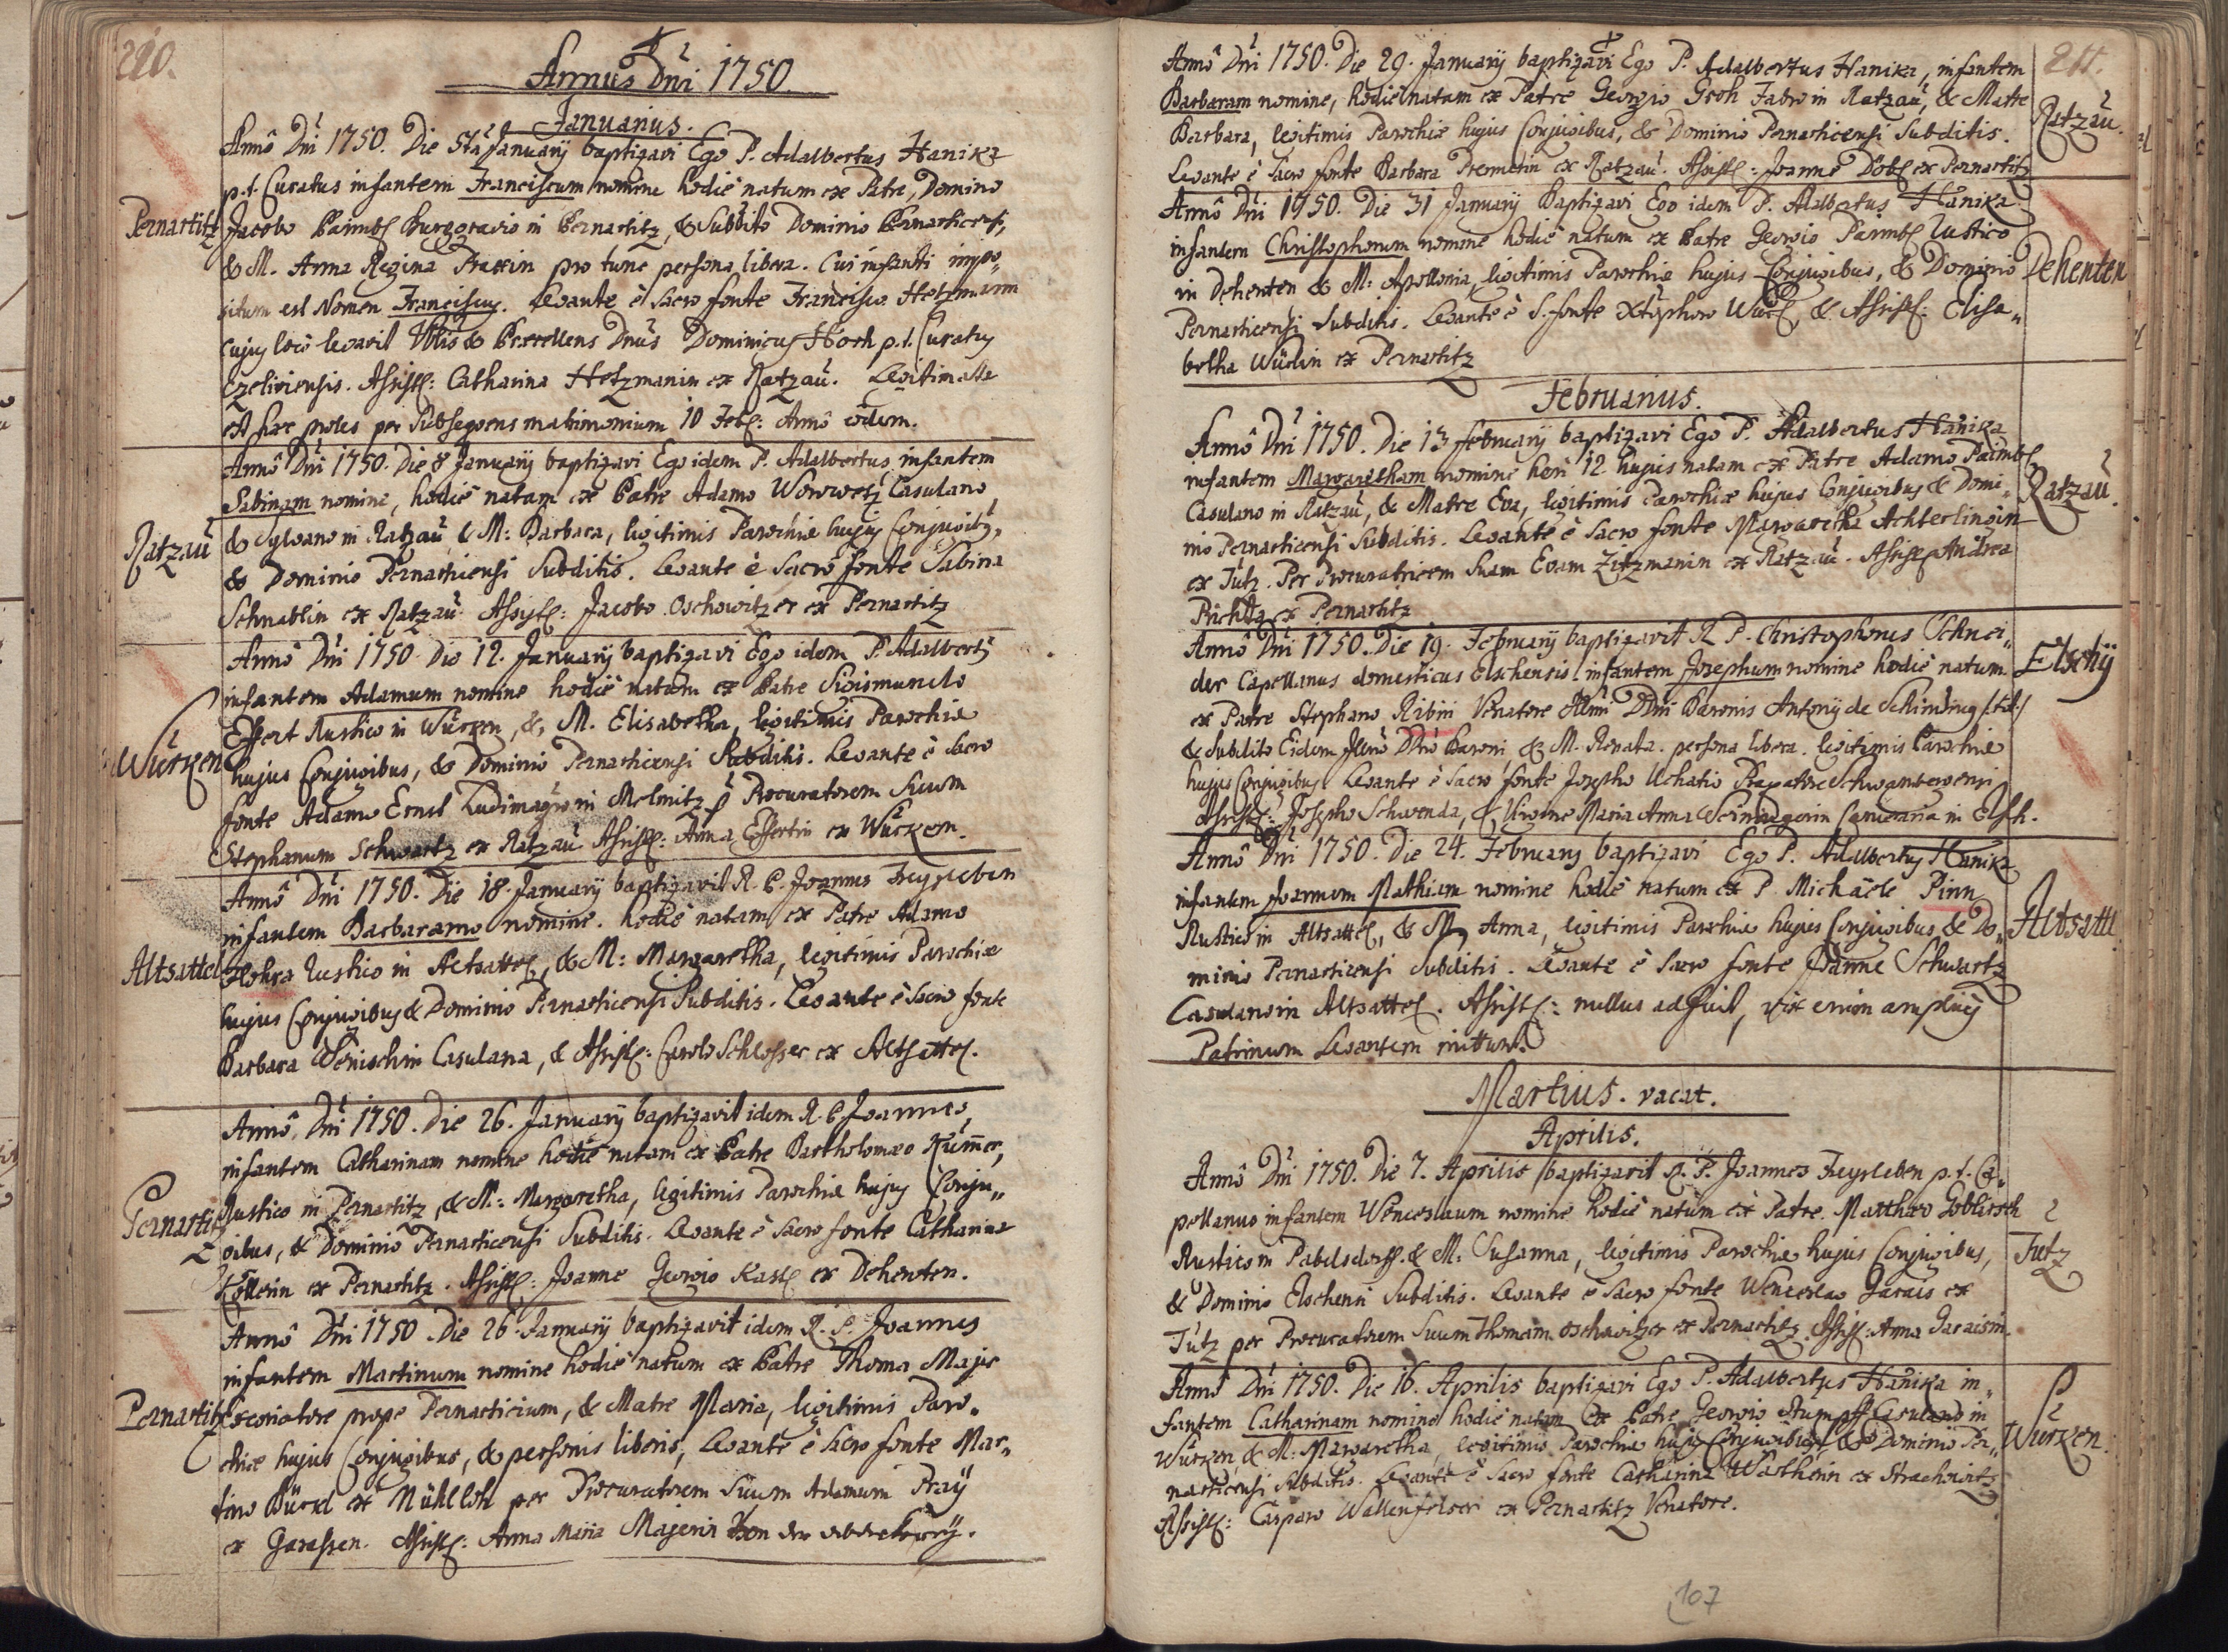 210.
Annus Dni 1750.
Januarius.
Annô Dni 1750. Die 5ta Januarij baptizavi Ego P. Adalbertus Hanika
p.t. Curatus infantem Franciscum nomine hodiè natum ex Patre, Domino
Pernartitz
Jacobo Burggravio in Pernartitz, & Subdito Dominio Pernarticensi,
& M. Anna Regina pro tunc persona libera. Cui infanti impo„
situm est Nomen Franciscus. Levante è sacro fonte Francisco Hetzmann
cujus loco levavit Dnus Dominicus Horh p.t. Curatus
Assist: Catharina Hetzmanin ex Ratzau. Legitimata
est haec proles per subsequens matrimonium 10 Feb: Annô eodem.
Annô Dni 1750. Die 8 Januarij baptizavi Ego idem P. Adalbertus infantem
Sabinam nomine, hodiè natam ex Patre Adamo Worwetz Casulano
Ratzau
& Sylvano in Ratzau & M: Barbara, legitimis Parochiae hujus Conjugibus,
& Dominio Pernarticensi Subditis. Levante è Sacro fonte Sabina
Schnablin ex Ratzau. Assist: Jacobo Oschowitzer ex Pernartitz
Annô Dni 1750 Die 12. Januarij baptizavi Ego idem P. Adalbertus
infantem Adamum nomine hodiè natum ex Patre Sigismundo
Wurken
Effert Rustico in Wurken, & M. Elisabetha, legitimis Parochiae
hujus Conjugibus, & Dominio Pernarticensi Subditis. Levante è sacro
fonte Adamo Ernst Ludimagistro in Melmitz p Procuratorem Suum
Stephanum Schwartz ex Ratzau Assist: Anna Effertin ex Wurken.
Annô Dni 1750. Die 18. Januarij baptizavit R. P. Joannes Feyrleben
infantem Barbaram nomine. hodiè natam ex Patre Adamo
Altsattel
Rustico in Altsattel, & M: Margaretha, legitimis Parochiae
hujus Conjugibus & Dominio Pernarticensi Subditis. Levante è Sacro fonte
Barbara Wenischin Casulana, & Assist: Carolo Schlosser ex Altsattel.
Annô Dni 1750. Die 26. Januarij baptizavit idem R. P. Joannes,
infantem Catharinam nomine hodiè natam ex Patre Bartholomaeo Kummer,
Pernartitz
Rustico in Pernartitz, & M: Margaretha, legitimis Parochiae hujus Conju„
gibus, & Dominio Pernarticensi Subditis. Levante è sacro fonte Catharina
Köllerin ex Pernartitz. Assist: Joanne Georgio Kastl ex Dehenten.
Annô Dni 1750. Die 26. Januarij baptizavit idem R. P. Joannes
infantem Martinum nomine hodiè natum ex Patre Thoma Majer
Pernartitz
Excoriatore prope Pernarticium, & Matre Maria, legitimis Paro„
chiae hujus Conjugibus, & personis liberis, Levante è Sacro fonte Mar„
tino Bürckl ex Mühlloh per Procuratorem Suum Adamum Pray
ex Garassen. Assist: Anna Maria Majerin
211.
Annô Dni 1750. Die 29. Januarij baptizavi Ego P. Adalbertus Hanika, infantem
Barbaram nomine, hodiè natam ex Patre Georgio Groh Fabro in Ratzau, & Matre
Ratzau.
Barbara, legitimis Parochiae hujus Conjugibus, & Dominio Pernarticensi Subditis.
Levante è Sacro fonte Barbara Prennerin ex Ratzau. Assist: Joanne Dobl ex Pernartitz
Annô Dni 1750. Die 31 Januarij Baptizavi Ego idem P. Adalbertus Hanika
infantem Christophorum nomine hodiè natum ex Patre Georgio Paimbl Rustico
Dehenten
in Dehenten & M: Apollonia, legitimis Parochiae hujus Conjugibus, & Dominio
Pernarticensi Subditis. Levante è S. fonte Xtophoro Würl, & Assist: Elisa„
betha Würlin ex Pernartitz
Februarius.
Annô Dni 1750. Die 13 februarij baptizavi Ego P. Adalbertus Hanika
infantem Margaretham nomine heri 12 hujus natam ex Patre Adamo Paimbl
Ratzau.
Casulano in Ratzau, & Matre Eva, legitimis Parochiae hujus Conjugibus & Domi„
nio Pernarticensi Subditis. Levante è Sacro fonte Margaretha Achterlingin
ex Tutz. Per Procuratricem Suam Evam Zitzmanin ex Ratzau. Assist: Andrea
Richter ex Pernartitz
Annô Dni 1750. Die 19. Februarij baptizavit R. P. Christophorus Schnei„
Elschij
der Capellanus domesticus Elschensis infantem Josephum nomine hodiè natum
ex Patre Stephano Ribini Venatore Illmi DDni Baronis Antonij de Schirnding /:tit:/
& Subdito Eidem Illmo DDno Baroni, & M. Renata. persona libera. legitimis Parochiae
hujus Conjugibus Levante è Sacro fonte Josepho Uchatio
Assist: Josepho Schwenda, & Virgine Maria Anna in Elsch.
Annô Dni 1750. Die 24. Februarij baptizavi Ego P. Adalbertus Hanika
infantem Joannem Mathiam nomine hodiè natum ex P. Michäele Pinn
Altsattl
Rustico in Altsattel, & M. Anna, legitimis Parochiae hujus Conjugibus & Do„
minio Pernarticensi Subditis. Levante è Sacro fonte Joanne Schwartz
Casulano in Altsattel. Assist: nullus adfuit, vix enim amplius
Patrinum Levantem mittunt.
Martius. vacat.
Aprilis.
Annô Dni 1750. Die 7. Aprilis baptizavit R. P. Joannes Feyrleben p.t. Ca„
pellanus infantem Wenceslaum nomine hodiè natum ex Patre. Matthaeo Goblirsch
Tutz
Rustico in Pabelsdorff. & M: Susanna, legitimis Parochiae hujus Conjugibus,
& Dominio Elschensi Subditis. Levante è Sacro fonte Wenceslao Garais ex
Tutz per Procuratorem Suum Thomam Oschowitzer ex Pernartitz. Assist: Anna Garaisin.
Annô Dni 1750. Die 16. Aprilis baptizavi Ego P. Adalbertus Hanika in„
fantem Catharinam nomine hodiè natam Ex Patre Georgio Stumpff Casulano in
Wurken.
Wurken, & M: Margaretha, legitimis Parochiae hujus Conjugibus, & Dominio Per„
narticensi Subditis. Levante è Sacro fonte Catharina Wartherin ex Strachowitz
Assist: Casparo Wallenfelser ex Pernartitz Venatore.
107